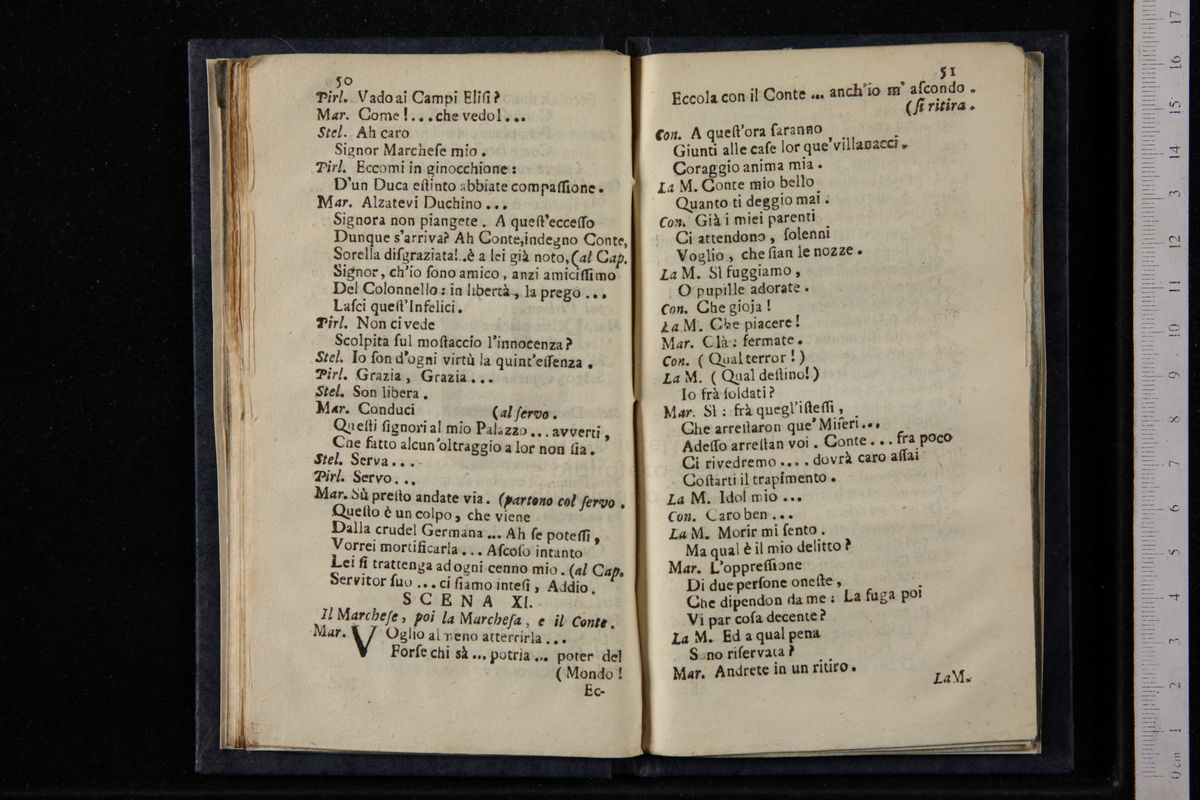 50
Pirl. Vado ai Campi Eliſi?
Mar. Come!...che vedo!...
Stel. Ah caro
Signor Marcheſe mio.
Pirl. Eccomi in ginocchione:
D'un Duca eſtinto abbiate compaſſione.
Mar. Alzatevi Duchino...
Signora non piangete. A queſt'ecceſſo
Dunque s'arriva? Ah Conte, indegno Conte,
Sorella diſgraziata!..è a lei già noto, (al Cap.
Signor, ch'io ſono amico, anzi amiciſſimo
Del Colonnello: in libertà, la prego...
Laſci queſt'Infelici.
Pirl. Non ci vede
Scolpita ſul moſtaccio l'innocenza?
Stel. Io ſon d'ogni virtù la quint'eſſenza.
Pirl. Grazia, Grazia...
Stel. Son libera.
Mar. Conduci (al ſervo.
Queſti ſignori al mio Palazzo...avverti,
Che fatto alcun'oltraggio a lor non ſia.
Stel. Serva...
Pirl. Servo...
Mar. Sù preſto andate via. (partono col ſervo.
Queſto è un colpo, che viene
Dalla crudel Germana... Ah ſe poteſſi,
Vorrei mortificarla... Aſcoſo intanto
Lei ſi trattenga ad ogni cenno mio. (al Cap.
Servitor ſuo...ci ſiamo inteſi, Addio.
SCENA XI.
Il Marcheſe, poi la Marcheſa, e il Conte.
Mar. VOglio almeno atterrirla...
Forſe chi sà...potria... poter del
(Mondo!
Ec-
51
Eccola con il Conte... anch'io m'aſcondo.
(ſi ritira.
Con. A queſt'ora ſaranno
Giunti alle caſe lor que'villanacci.
Coraggio anima mia.
La M. Conte mio bello
Quanto ti deggio mai.
Con. Già i miei parenti
Ci attendono, ſolenni
Voglio, che ſian le nozze.
La M. Sì fuggiamo,
O pupille adorate.
Con. Che gioja!
La M. Che piacere!
Mar. Olà: fermate.
Con. (Qual terror!)
La M. (Qual deſtino!)
Io frà ſoldati?
Mar. Sì: frà quegl'iſteſſi,
Che arreſtaron que' Miſeri...
Adeſſo arreſtan voi. Conte... fra poco
Ci rivedremo.... dovrà caro aſſai
Coſtarti il trapimento.
La M. Idol mio...
Con. Caro ben...
La M. Morir mi ſento.
Ma qual è il mio delitto?
Mar. L'oppreſſione
Di due perſone oneſte,
Che dipendon da me: La fuga poi
Vi par coſa decente?
La M. Ed a qual pena
Sono riſervata?
Mar. Andrete in un ritiro.
La M.
0 cm 1 2 3 4 5 6 7 8 9 10 11 12 13 14 15 16 17